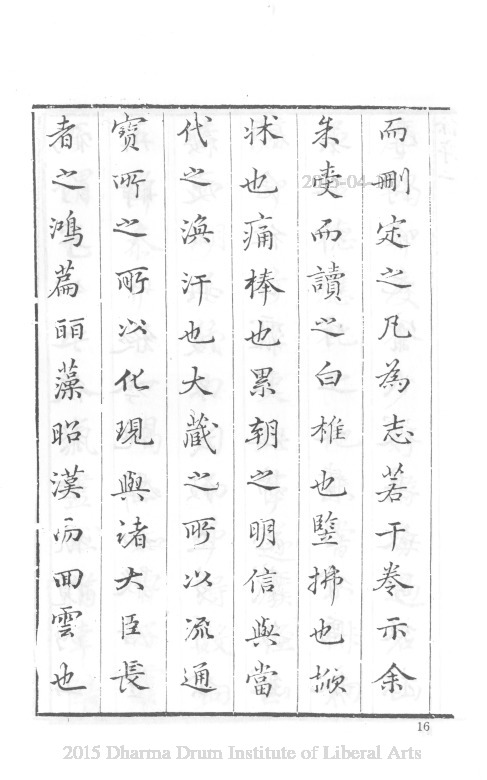 而刪定之凡為志若干卷示余
朱夷而讀之白椎也豎拂也掀
牀也痛棒也累朝之明信與當
代之渙汗也大藏之所以流通
寶所之所以化現與諸大臣長
者之鴻篇麗藻昭漢而回雲也
16
2015 Dharma Drum Institute of Liberal Arts